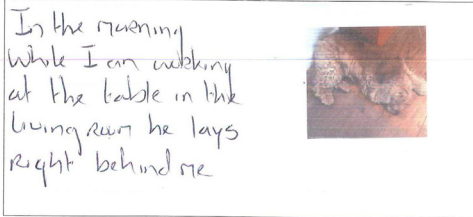 In the morning
while I am working
at the table in the
living room he lays
Right behind me